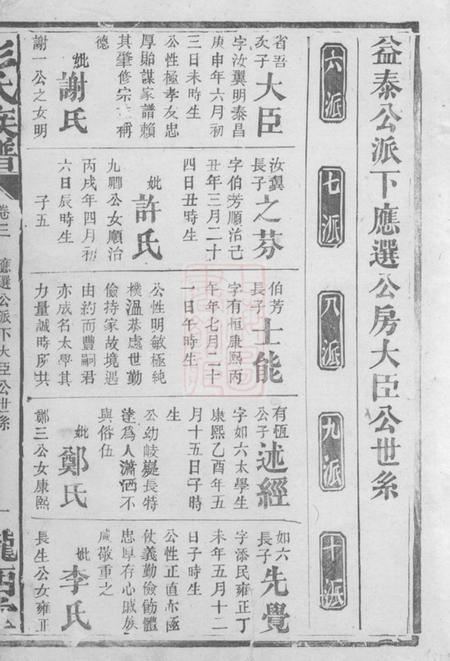 益泰公派下應選公房大臣公世系
六派
七派
八派
九派
十派
省吾次子
大臣
字汝翼明泰昌
庚申年六月初
三日未時生
公性極孝友忠
厚顯謀家譜賴
其肇修宗工稱
德
妣謝氏
謝一公之女明
汝翼長子
之芬
字伯芳順治己
丑年三月二十
四日丑時生
妣許氏
九卿公女順治
丙戌年四月初
六日辰時生
子五
伯芳長子
士能
字有恒康熙丙
午年七月二十
一日午時生
公性明敏極純
樸溫恭處世勤
儉持家故境遇
由約而豐嗣君
亦成名太學其
力量誠時所共
有恆公子
述經
字如六太學生
康熙乙酉年五
月十五日子時
生
公幼岐嶷長特
達為人瀟洒不
與俗伍
妣鄭氏
鄭三公女康熙
如六長子
先覺
字添民雍正丁
未年五月十二
日子時生
公性正直亦極
仗義勤儉飭體
忠厚存心戚族
咸敬重之
妣李氏
長生公女雍正
氏族譜
卷三
應選公派下大臣公世系
一
隴西堂